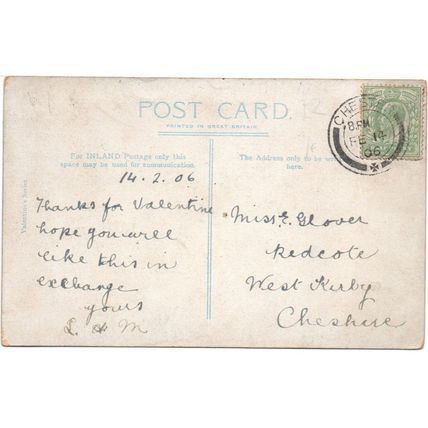 POST CARD.
PRINTED IN GREAT BRITAIN.
For INLAND Postage only this
space may be used for communication.
The Address only to be
here.
Valentine's Series
CHES
8 PM
FE 14
06
14.2.06
Thanks for Valentine
hope you will
like this in
exchange
yours
L & M
Miss E. Glover
Redcote
West Kirby
Cheshire